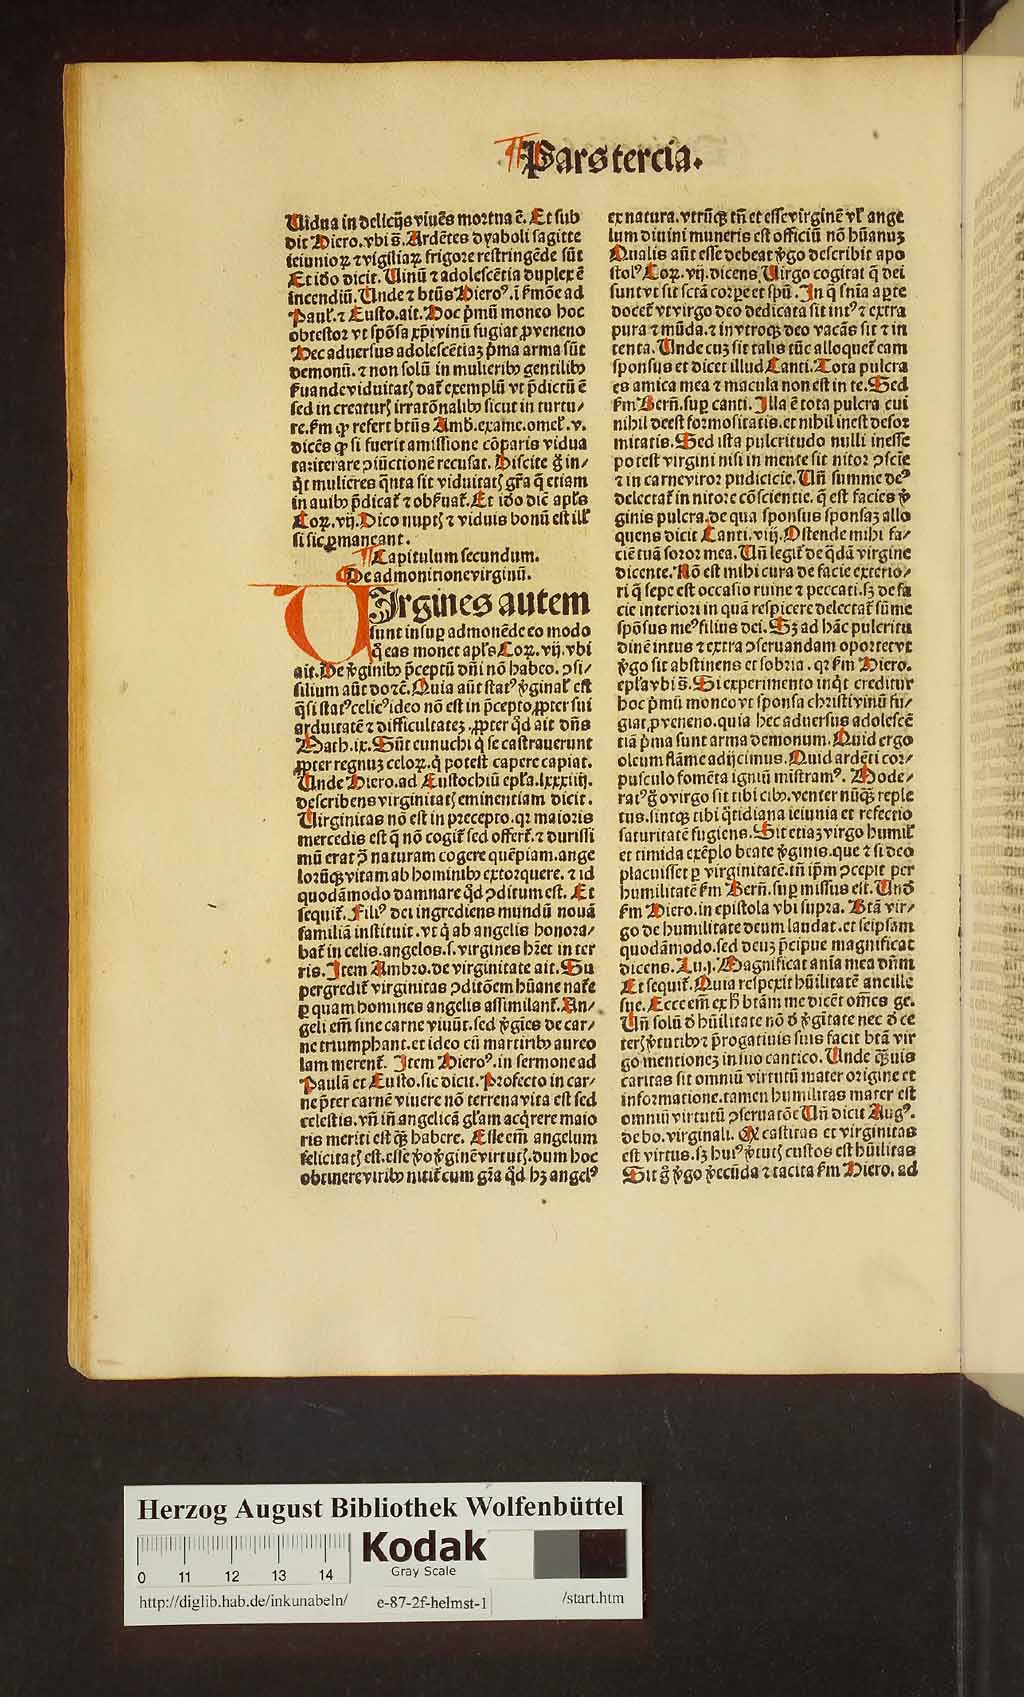 Pars tercia.
Uidua in delicijs viuẽs mortua ẽ. Et sub
dit Hiero. vbi s̃. Ardẽtes dyaboli sagitte
ieiunioꝝ ⁊ vigiliaꝝ frigore restringẽde sũt
Et iďo dicit. Uinũ ⁊ adolescẽtia duplex ẽ
incendiũ. Unde ⁊ btũs Hieroꝰ. ĩ ẜmõe ad
Paul̃. ⁊ Eusto. ait. Hoc pͥmũ moneo hoc
obtestor vt spõsa xp̃i vinũ fugiat ꝓ veneno
Hec aduersus adolescẽtiaꝫ pͥma arma sũt
demonũ. ⁊ non solũ in mulierib⁹ gentilib⁹
ẜuande viduitatꝭ dat̃ exemplũ vt p̃dictũ ẽ
sed in creaturꝭ irratõnalib⁹ sicut in turtu⸗
re. ẜm qꝫ refert btũs Amb. exame. omel̃. v.
dicẽs qꝫ si fuerit amissione cõparis vidua
ta: iterare ꝯiũctionẽ recusat. Discite g̃ in⸗
q̃t mulieres q̃nta sit viduitatꝭ gr̃a q̃ etiam
in auib⁹ p̃dicat̃ ⁊ obẜuat̃. Et iďo dic̃ apl̃s
Coꝝ. vij. Dico nuptꝭ ⁊ viduis bonũ est ill̃
si sic ꝑmaneant.
Capitulum secundum.
De admonitione virginũ.
UIrgines autem
sunt insuꝑ admonẽde eo modo
q̃ eas monet apl̃s Coꝝ. vij. vbi
ait. De v̾ginib⁹ p̃ceptũ dñi nõ habeo. ꝯsi⸗
silium aũt do ⁊c̃. Quia aũt statꝰ v̾ginal̃ est
q̃si statꝰ celicꝰ ideo nõ est in p̃cepto ꝓpter sui
arduitatẽ ⁊ difficultateꝫ. ꝓpter qͥd ait dñs
Math. ix. Sũt eunuchi q̃ se castrauerunt
ꝓpter regnuꝫ celoꝝ. q̃ potest capere capiat.
Unde Hiero. ad Eustochiũ epl̃a. lxxxiiij.
describens virginitatꝭ eminentiam dicit.
Uirginitas nõ est in precepto. qꝛ maioris
mercedis est q̃ nõ cogit̃ sed offert̃. ⁊ durissi
mũ erat ꝯ̃ naturam cogere quẽpiam. ange
lorũqꝫ vitam ab hominib⁹ extorquere. ⁊ id
quodãmodo damnare qͥd ꝯditum est. Et
sequit̃. Filiꝰ dei ingrediens mundũ nouã
familiã instituit. vt q̃ ab angelis honora⸗
bat̃ in celis. angelos. s. virgines hr̃et in ter
ris. Item Ambro. de virginitate ait. Su
pergredit̃ virginitas ꝯditõem hũane nat̃e
ꝑ quam homines angelis assimilant̃. An⸗
geli em̃ sine carne viuũt. sed v̾gĩes de car⸗
ne triumphant. et ideo cũ martirib⁹ aureo
lam merent̃. Item Hieroꝰ. in sermone ad
Paulã et Eusto. sic dicit. Profecto in car⸗
ne p̃ter carnẽ viuere nõ terrena vita est sed
celestis. vñ ĩ angelicã gl̃am acq̃rere maio
ris meriti est q̃ꝫ habere. Esse em̃ angelum
felicitatꝭ est. esse v̾o v̾ginẽ virtutꝭ. dum hoc
obtinere virib⁹ nitit̃ cum gr̃a qͥd hꝫ angelꝰ
ex natura. vtrũqꝫ tñ et esse virginẽ vl̃ ange
lum diuini muneris est officiũ nõ hũanuꝫ
Qualis aũt esse debeat v̾go describit apo
stolꝰ Coꝝ. vij. dicens Uirgo cogitat q̃ dei
sunt vt sit sctã corꝑe et spũ. In q̃ sñia aꝑte
docet̃ vt virgo deo dedicata sit intꝰ ⁊ extra
pura ⁊ mũda. ⁊ in vtroqꝫ deo vacãs sit ⁊ in
tenta. Unde cuꝫ sit talis tũc alloquet̃ eam
sponsus et dicet illud Canti. Tota pulcra
es amica mea ⁊ macula non est in te. Sed
ẜm Berñ. suꝑ canti. Illa ẽ tota pulcra cui
nihil deest formositatis. et nihil inest defor
mitatis. Sed ista pulcritudo nulli inesse
potest virgini nisi in mente sit nitor ꝯscĩe
⁊ in carne viror pudicicie. Uñ summe deꝰ
delectat̃ in nitore cõscientie. q̃ est facies v̾
ginis pulcra. de qua sponsus sponsaꝫ allo
quens dicit Canti. viij. Ostende mihi fa⸗
ciẽ tuã soror mea. Uñ legit̃ de q̃dã virgine
dicente. Nõ est mihi cura de facie exterio⸗
ri q̃ sepe est occasio ruine ⁊ peccati. sꝫ de fa
cie interiori in quã respicere delectat̃ sũme
spõsus meꝰ filius dei. Sꝫ ad hãc pulcritu
dinẽ intus ⁊ extra ꝯseruandam oportet vt
v̾go sit abstinens et sobria. qꝛ ẜm Hiero.
epl̃a vbi s̃. Si experimento inq̃t creditur
hoc pͥmũ moneo vt sponsa christi vinũ fu⸗
giat ꝓ veneno. quia hec aduersus adolescẽ
tiã pͥma sunt arma demonum. Quid ergo
oleum flãme adijcimus. Quid ardẽti cor⸗
pusculo fomẽta igniũ mĩstramꝰ. Mode⸗
ratꝰ g̃ o virgo sit tibi cib⁹. venter nũqꝫ reple
tus. sintqꝫ tibi q̃tidiana ieiunia et refectio
saturitatẽ fugiens. Sit etiaꝫ virgo humil̃
et timida exẽplo beate v̾ginis. que ⁊ si deo
placuisset ꝑ virginitatẽ. tñ ip̃m ꝯcepit per
humilitatẽ ẜm Berñ. suꝑ missus est. Unď
ẜm Hiero. in epistola vbi supra. Btã vir⸗
go de humilitate deum laudat. et seipsam
quodãmodo. sed deuꝫ p̃cipue magnificat
dicens. Lu. j. Magnificat anĩa mea dñm
Et sequit̃. Quia respexit hũilitatẽ ancille
sue. Ecce em̃ ex h̾ btãm me dicẽt om̃es ge.
Uñ solũ ď hũilitate nõ ď v̾gĩtate nec ď ce
terꝭ v̾tutib⁹ ⁊ p̃rogatiuis suis facit btã vir
go mentioneꝫ in suo cantico. Unde q̃ꝫuis
caritas sit omniũ virtutũ mater origine et
informatione. tamen humilitas mater est
omniũ virtutũ ꝯseruatõe Uñ dicit Augꝰ.
de bo. virginali. Qꝫ castitas et virginitas
est virtus. sꝫ huiꝰ v̾tutꝭ custos est hũilitas
Sit g̃ v̾go v̾ecũda ⁊ tacita ẜm Hiero. ad
Herzog August Bibliothek Wolfenbüttel
Kodak
Gray Scale
0 11 12 13 14
http://diglib.hab.de/inkunabeln/ e-87-2f-helmst-1 /start.htm